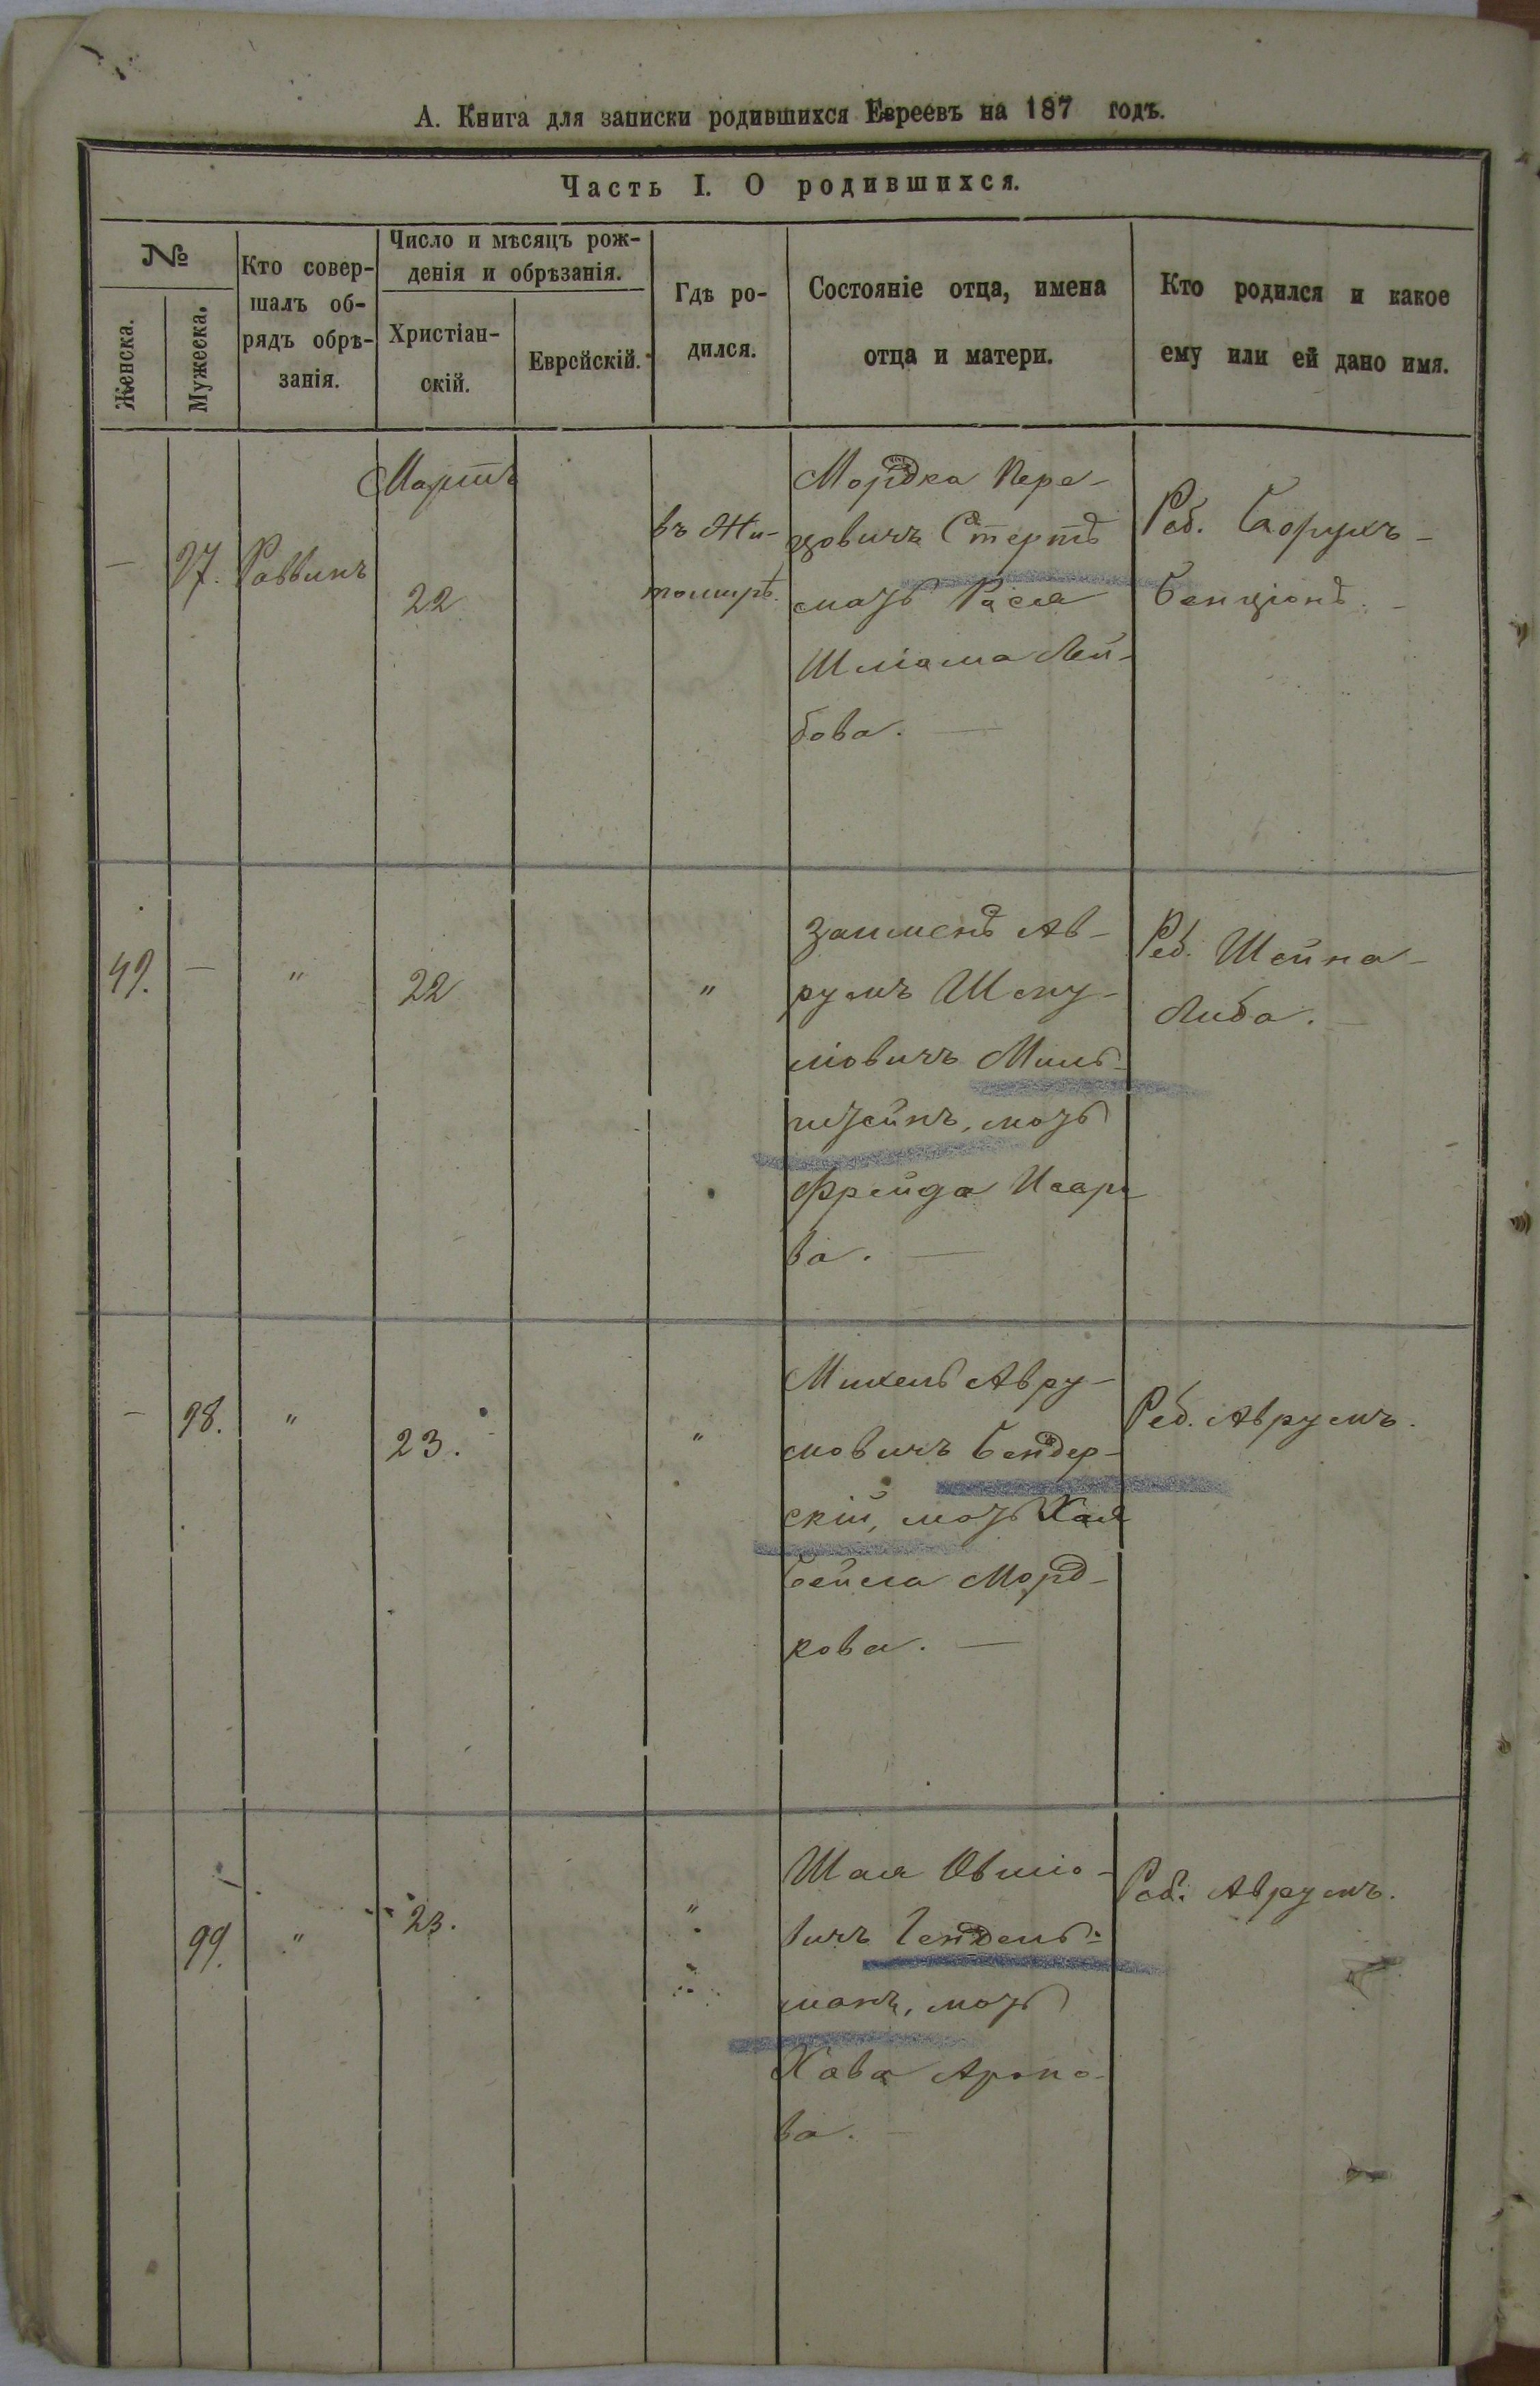 А. Книга для записки родившихся Евреевъ на 187 годъ.
Часть I. О родившихся.
№
Женска.
Мужеска.
Кто совер-
шалъ об-
рядъ обрѣ-
занія.
Число и мѣсяцъ рож-
денія и обрѣзанія.
Христіан-
скій.
Еврейскій.
Гдѣ ро-
дился.
Состояніе отца, имена
отца и матери.
Кто родился и какое
ему или ей дано имя.
— 97. Раввинъ
Мартъ
22
въ Жи-
томирѣ.
Мордка Пере-
цовичъ Стертъ
мать Рася
Шліома Лей-
бова. —
Реб. Борухъ-
Бенціонъ. —
49. — " 22 "
Залменъ Ав-
румъ Шму-
ліовичъ Миль-
штейнъ, мать
Фрейда
ва. —
Реб. Шейна-
Либа. —
— 98. " 23. "
Михель Авру-
мовичъ Бендер-
скій, мать Хая
Бейла Морд-
кова. —
Реб. Аврумъ.
99. " 23. "
Шая Овшіо-
вичъ Гендель-
манъ, мать
Хава Ароно-
ва. —
Реб. Аврумъ.